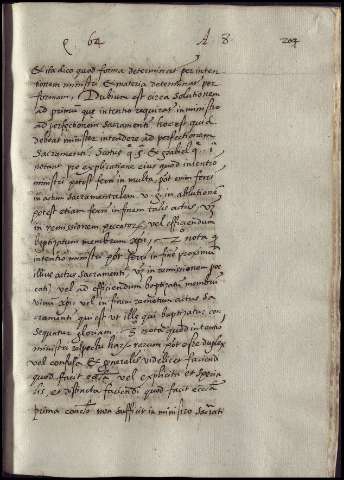 q. 64 A 8. 204
Et ita dico quod forma determinatur per inten
tionem ministri Et materia determinatur per
formam. Dubium est circa solutionem
ad primum que intentio requiratur in ministro
ad perfectionem sacramenti hoc est quid
debeat minister intendere ad perfectionem
sacramenti. Scotus q. 5. Et gabriel q.
notant pro explicatione eius quod intentio
ministri potest ferri in multa. pot enim ferri
in actum sacramentalem v. g. in ablutionē
potest etiam ferri in finem talis actus, vz
in remissionem peccatorū vel efficiendum
baptizatum membrum xpi, 2º nota q
intentio ministri pot ferri in finē proximū
illius actus sacramenti vz in remissionem pec
cati vel ad efficiendum baptizatū membrū
vivū xpi vel in finem remotum actus sa
cramenti qui est ut ille qui baptizatur con
sequatur gloriam. 3º nota quod intentio
ministri respectu harum rerum pot esse duplex
vel confusa Et generalis videlicet faciendi
quod facit eccª vel explicita et specia
lis, et distincta faciendi quod facit eccª
prima conclº. non sufficit in ministro sacrati